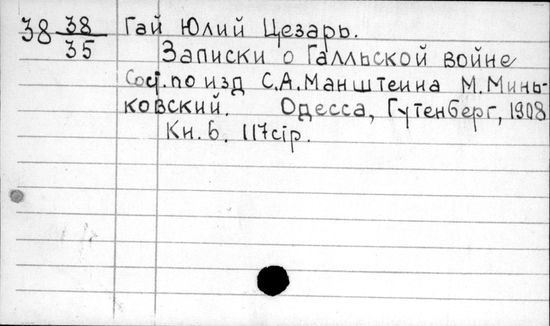 38 38/35 Гай Юлий Цезарь.
Записки о Галльской войне
Сост. по изд С.А.Манштеина М.Минь-
ковский. Одесса, Гутенберг, 1908
Кн. 6. 117стр.